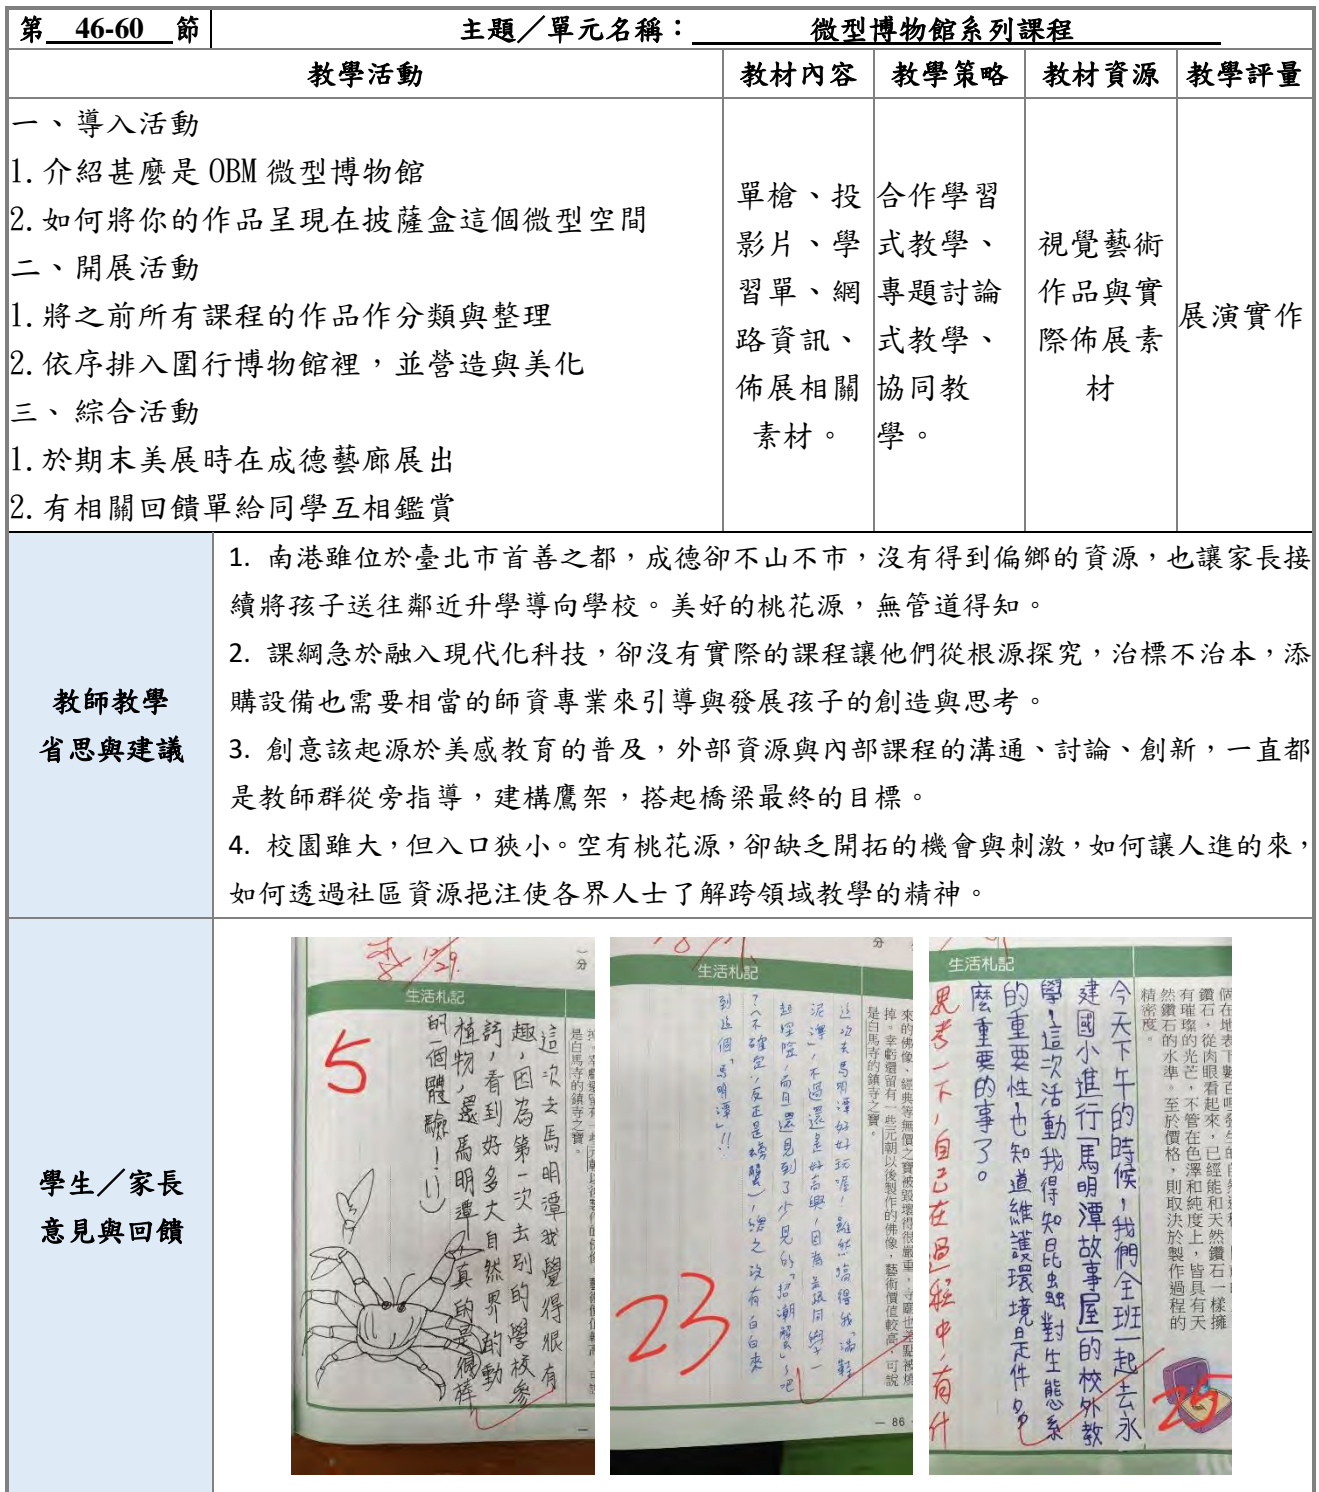 第 46-60 節 主題／單元名稱： 微型博物館系列課程
教學活動 教材內容 教學策略 教材資源 教學評量
一、導入活動
1.介紹甚麼是 OBM 微型博物館
2.如何將你的作品呈現在披薩盒這個微型空間
二、開展活動
1.將之前所有課程的作品作分類與整理
2.依序排入圍行博物館裡，並營造與美化
三、 綜合活動
1.於期末美展時在成德藝廊展出
2.有相關回饋單給同學互相鑑賞
單槍、投
影片、學
習單、網
路資訊、
佈展相關
素材。
合作學習
式教學、
專題討論
式教學、
協同教
學。
視覺藝術
作品與實
際佈展素
材
展演實作
教師教學
省思與建議
1. 南港雖位於臺北市首善之都，成德卻不山不市，沒有得到偏鄉的資源，也讓家長接
續將孩子送往鄰近升學導向學校。美好的桃花源，無管道得知。
2. 課綱急於融入現代化科技，卻沒有實際的課程讓他們從根源探究，治標不治本，添
購設備也需要相當的師資專業來引導與發展孩子的創造與思考。
3. 創意該起源於美感教育的普及，外部資源與內部課程的溝通、討論、創新，一直都
是教師群從旁指導，建構鷹架，搭起橋梁最終的目標。
4. 校園雖大，但入口狹小。空有桃花源，卻缺乏開拓的機會與刺激，如何讓人進的來，
如何透過社區資源挹注使各界人士了解跨領域教學的精神。
學生／家長
意見與回饋
12/29
分
生活札記
是白馬寺的鎮寺之寶。
這次去馬明潭我覺得很有
趣，因為第一次去別的學校參
訪，看到好多大自然界的動
植物，還馬明潭真的是很棒
的一個體驗！:)
5
分
生活札記
來的佛像、經典等無價之寶被毀壞得很嚴重，寺廟也差點被燒
掉。幸虧還留有一些元朝以後製作的佛像，藝術價值較高，可說
是白馬寺的鎮寺之寶。
這次去馬明潭好好玩喔！雖然搞得我「滿鞋
泥濘」，不過還是好高興，因為是跟同學一
起探險，而且還見到了少見的「招潮蟹」吧
？（不確定，反正是螃蟹），總之沒有白白來
到這個「馬明潭」!!
23
— 86
生活札記
鑽石，從肉眼看起來，已經能和天然鑽石一樣擁
有璀璨的光芒，不管在色澤和純度上，皆具有天
然鑽石的水準。至於價格，則取決於製作過程的
精密度。
今天下午的時候，我們全班一起去永
建國小進行「馬明潭故事屋」的校外教
學，這次活動我得知昆蟲對生態系
的重要性，也知道維護環境是件多
麼重要的事了。
思考一下，自己在過程中，有什
25